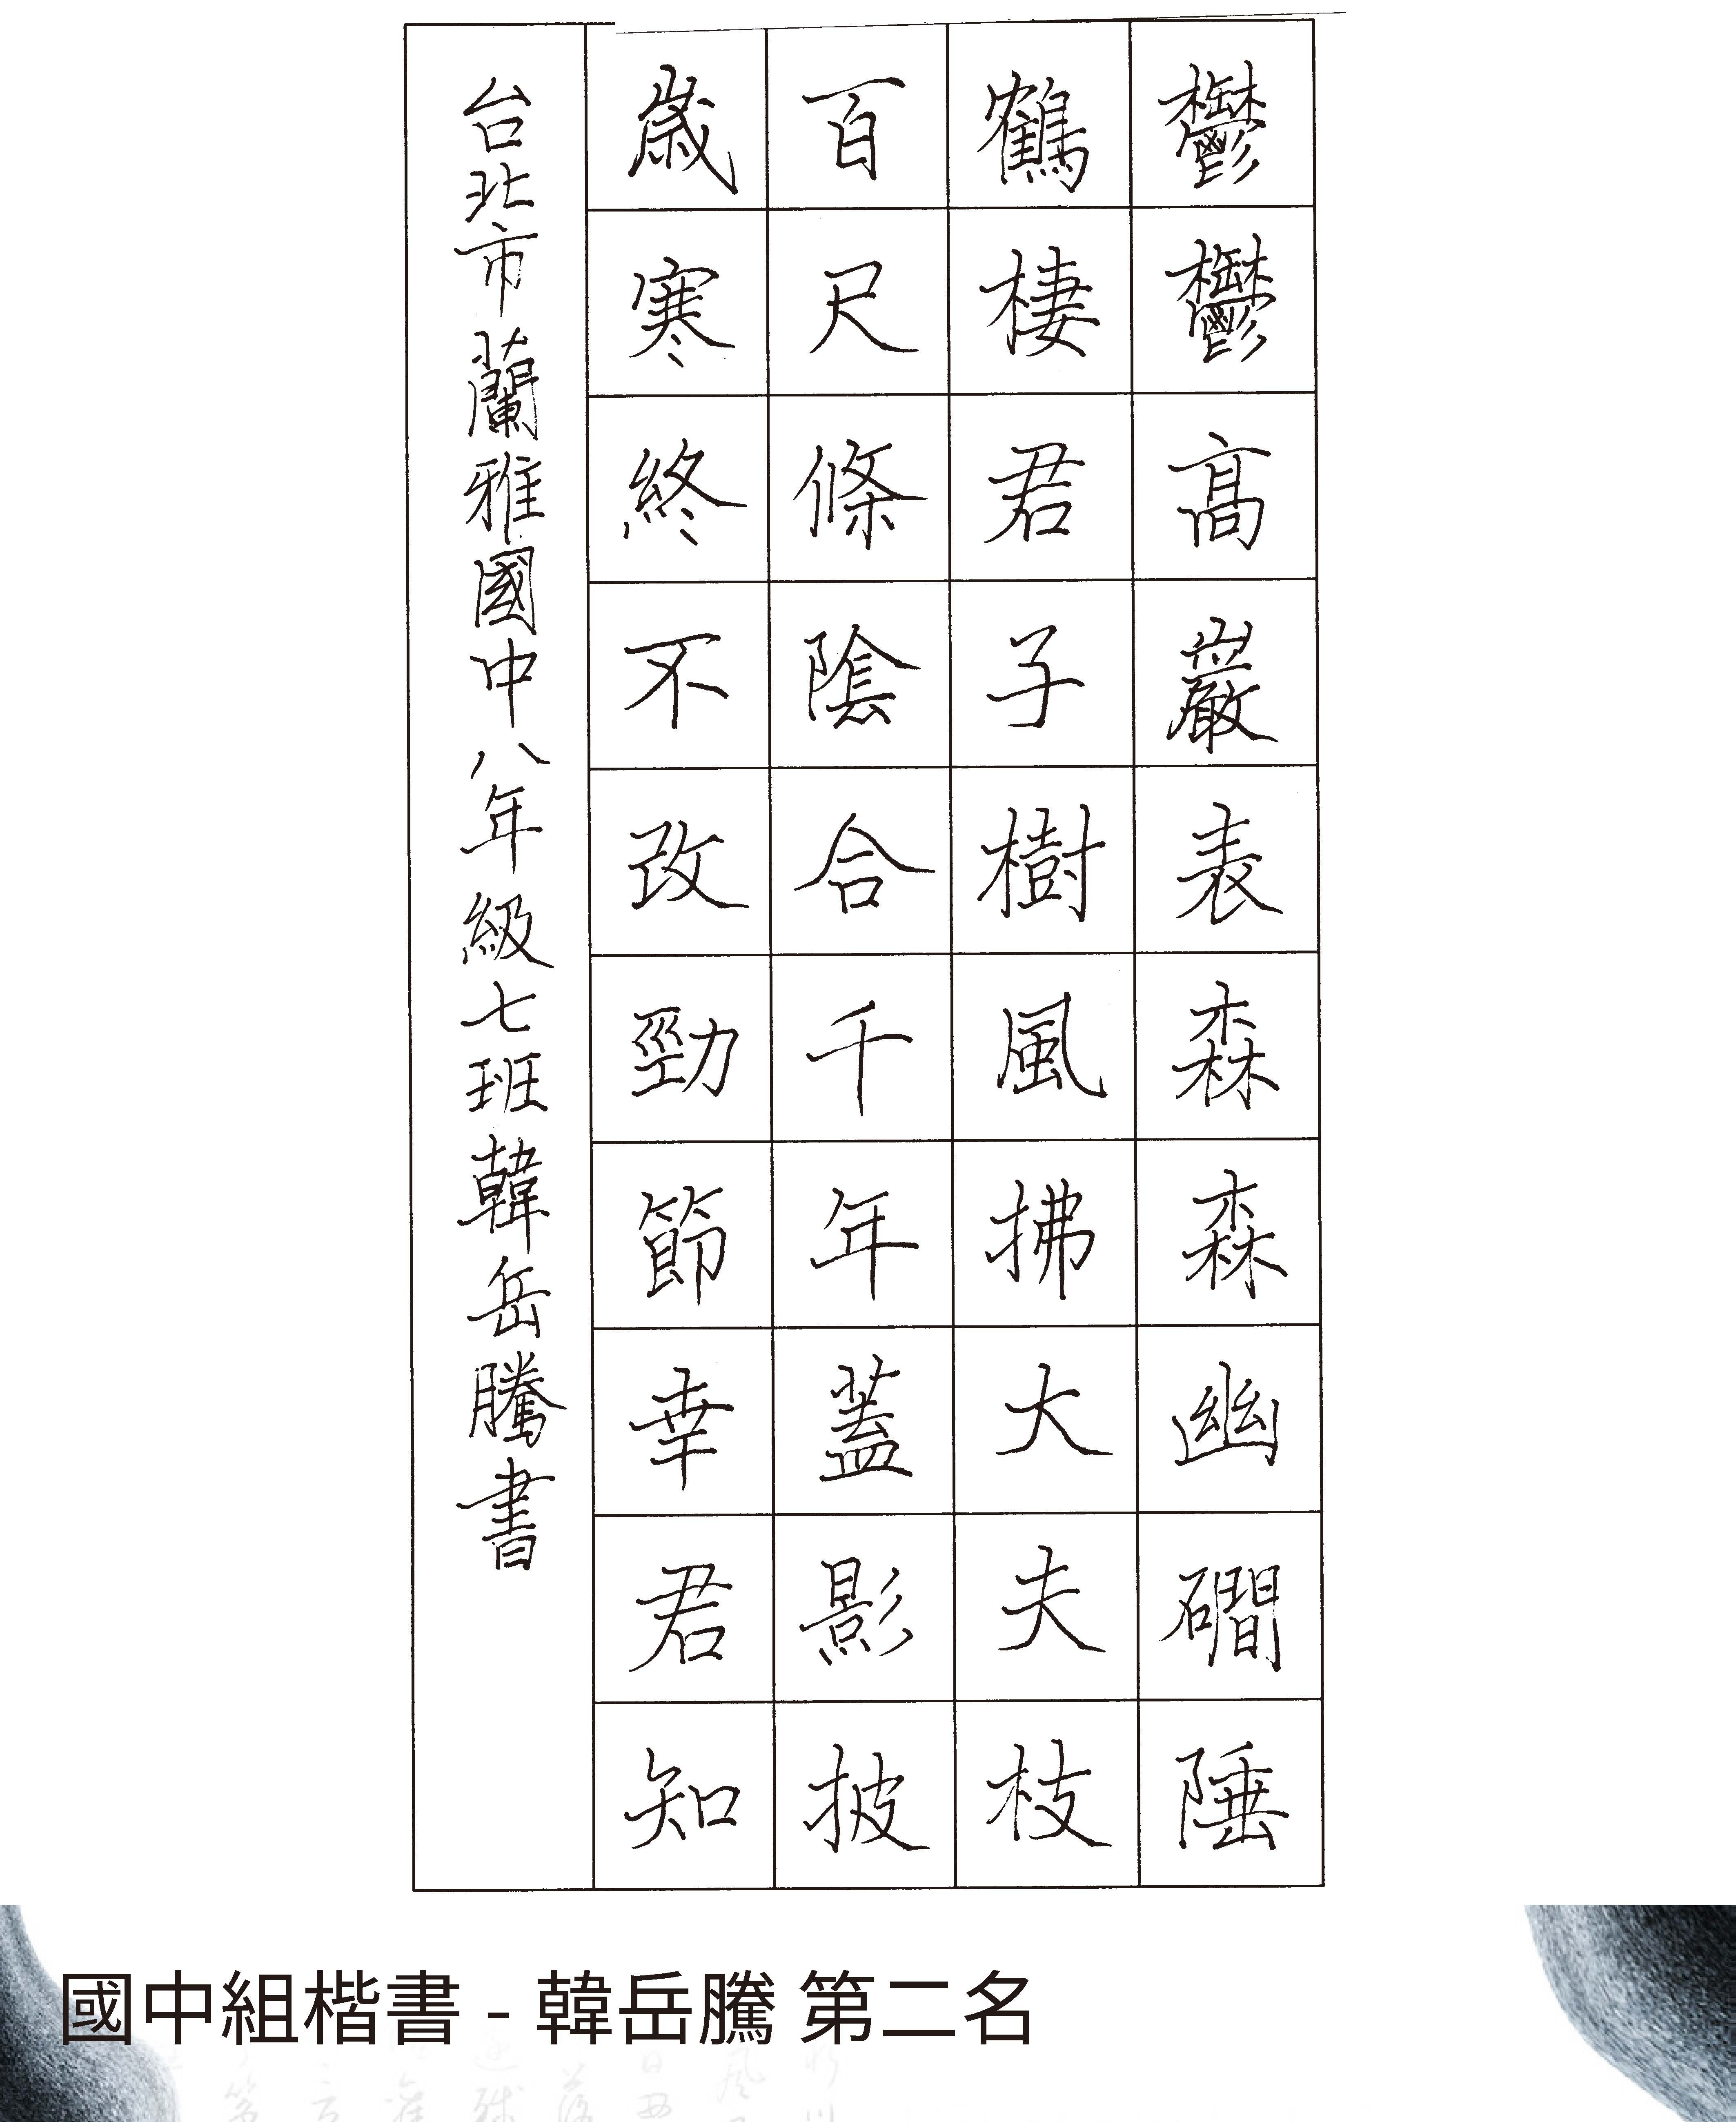 鬱鬱高巖表森森幽磵陲
鶴棲君子樹風拂大夫枝
百尺條陰合千年蓋影披
歲寒終不改勁節幸君知
台北市蘭雅國中八年級七班韓岳騰書
國中組楷書 - 韓岳騰 第二名